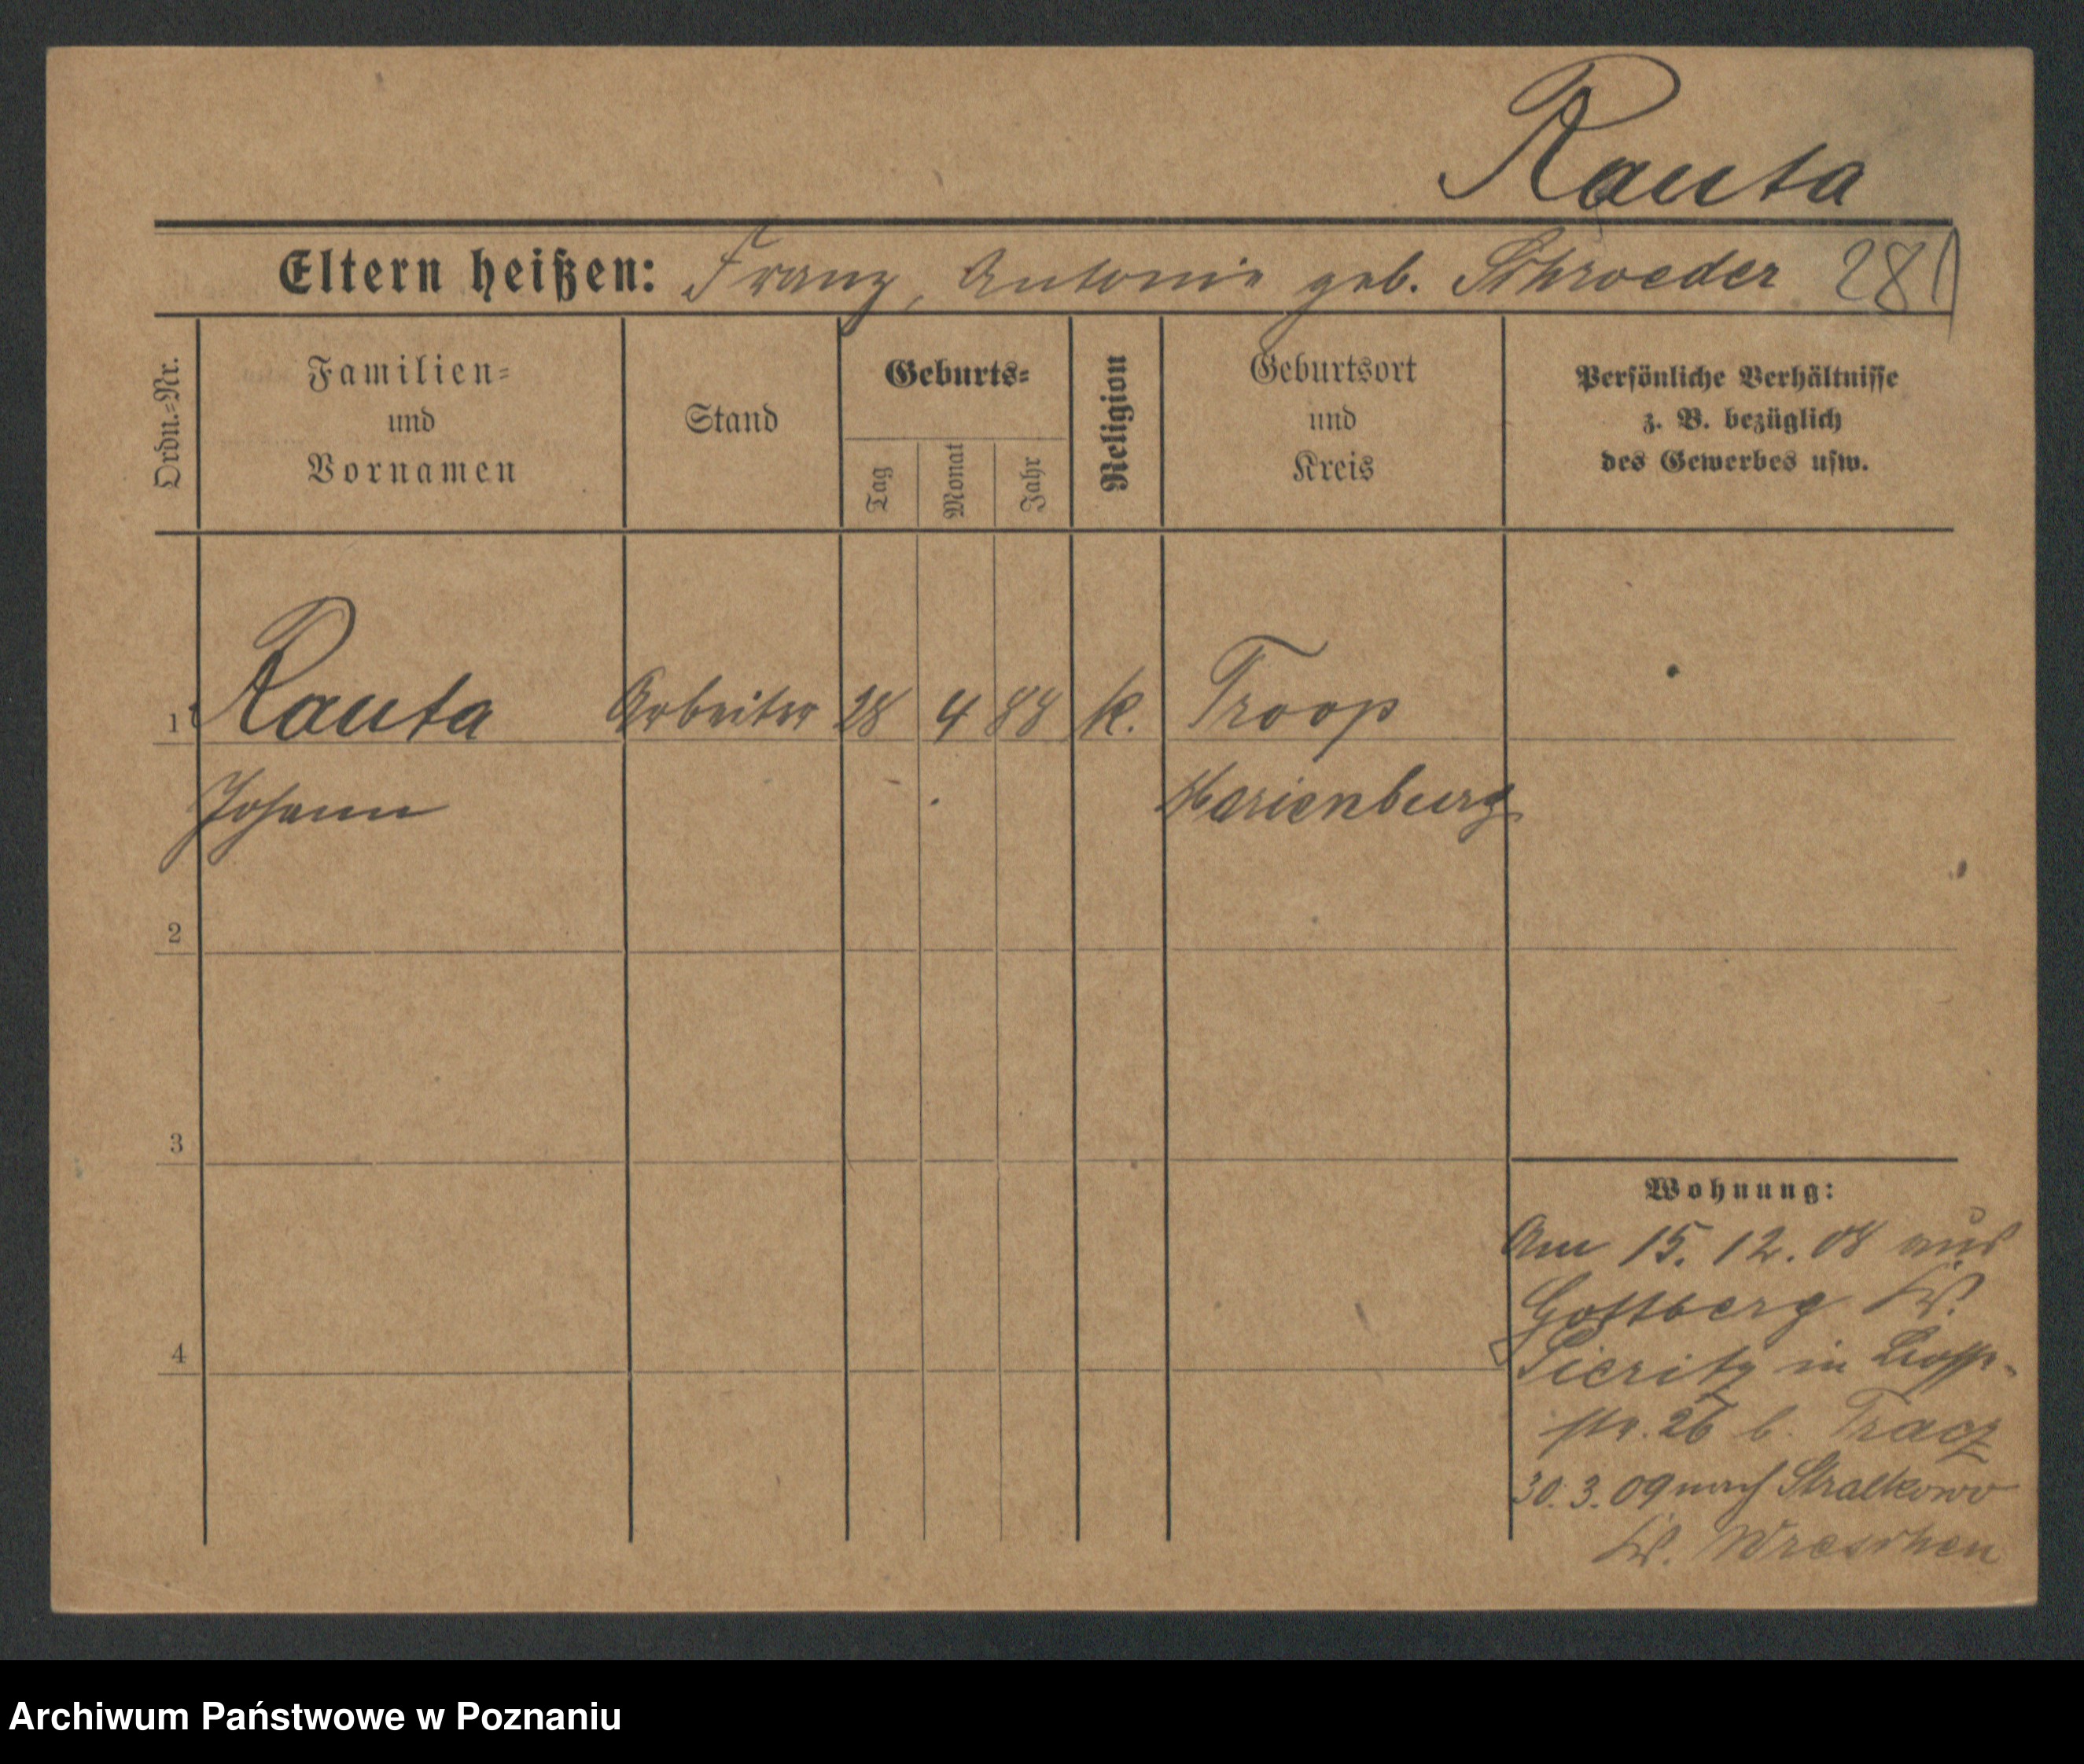 Rauta
Eltern heißen: Franz, Antonie geb. Schroeder 281
Ordn.=Nr.
Familien=
und
Vornamen
Stand
Geburts=
Tag
Monat
Jahr
Religion
Geburtsort
und
Kreis
Persönliche Verhältnisse
z. B. bezüglich
des Gewerbes usw.
1 Rauta Arbeiter 28 4 88 k. Troop
Johann Marienburg
2
3
4
Wohnung:
Am 15. 12. 08 aus
Gottberg K.
in
str. 26 b. Tracz
30. 3. 09 nach Stralkowo
K. Wreschen
Archiwum Państwowe w Poznaniu